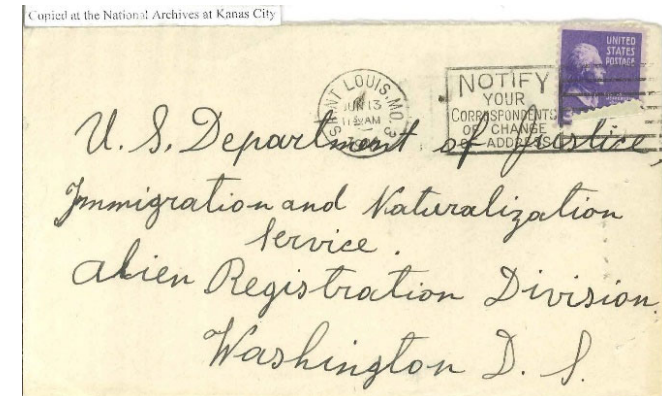 Copied at the National Archives at Kanas City
UNITED
STATES
POSTAGE
SAINT LOUIS, MO. 3
JUN 13
AM
NOTIFY
YOUR
CORRESPONDENTS
OF CHANGE
OF ADDRESS
U. S. Department of Justice,
Immigration and Naturalization
Service.
Alien Registration Division.
Washington D. S.